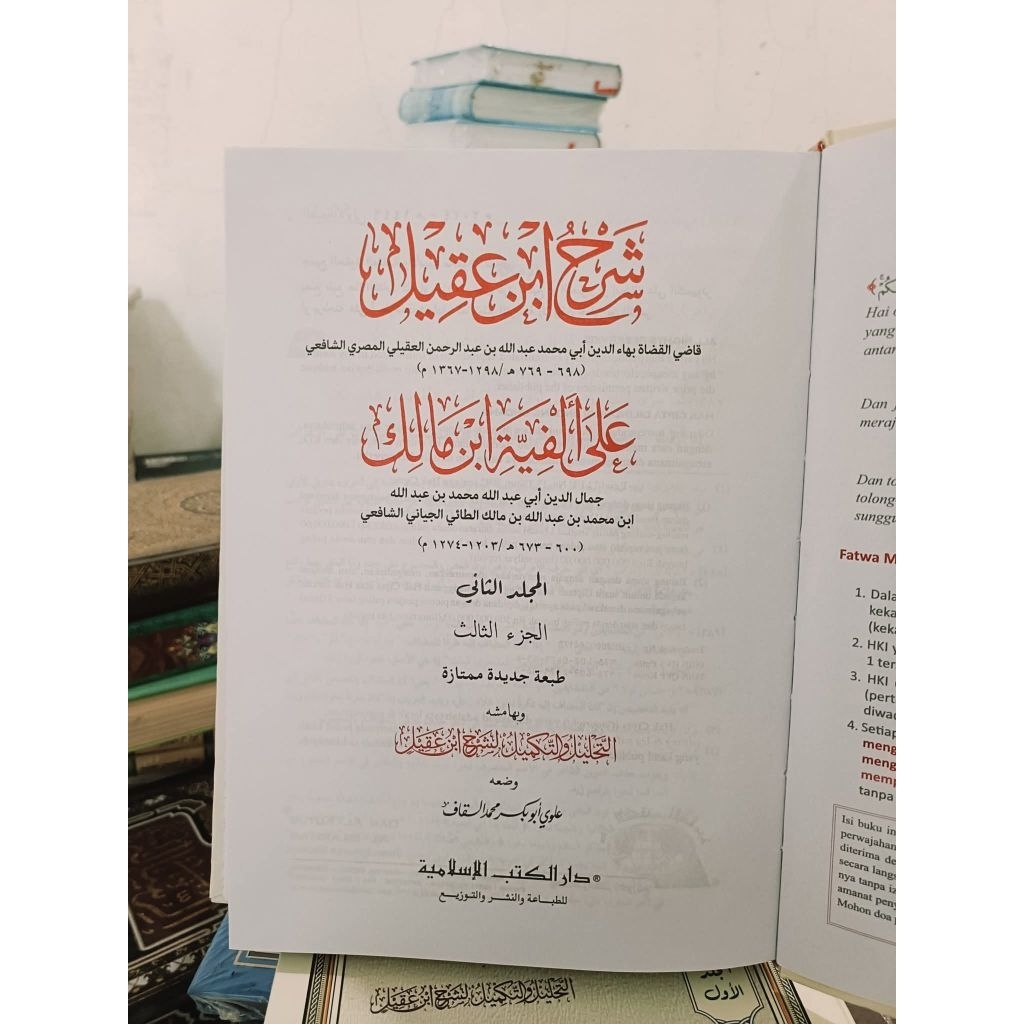 شَرْحُ ابْنِ عَقِيْل
قاضي القضاة بهاء الدين أبي محمد عبد الله بن عبد الرحمن العقيلي المصري الشافعي
(٦٩٨ - ٧٦٩ هـ /١٢٩٨-١٣٦٧ م)
عَلَى أَلْفِيَّةِ ابْنِ مَالِك
جمال الدين أبي عبد الله محمد بن عبد الله
ابن محمد بن عبد الله بن مالك الطائي الجياني الشافعي
(٦٠٠ - ٦٧٣ هـ /١٢٠٣-١٢٧٤ م)
المجلد الثاني
الجزء الثالث
طبعة جديدة ممتازة
وبهامشه
التَّحْلِيْلُ وَالتَّكْمِيْلُ لِشَرْحِ ابْنِ عَقِيْل
وضعه
علوي أبو بكر محمد السقاف
دار الكتب الإسلامية®
للطباعة والنشر والتوزيع
Hai
yang
antar
Dan
meraj
Dan to
tolong
sunggu
Fatwa M
1. Dala
keka
(keka
2. HKI
1 ter
3. HKI
(pert
diwa
4. Setiap
meng
meng
memp
tanpa
Isi buku in
perwajahan
diterima de
secara langs
nya tanpa iz
amanat peny
Mohon doa
التَّحْلِيْلُ وَالتَّكْمِيْلُ لِشَرْحِ ابْنِ عَقِيْل
الأول